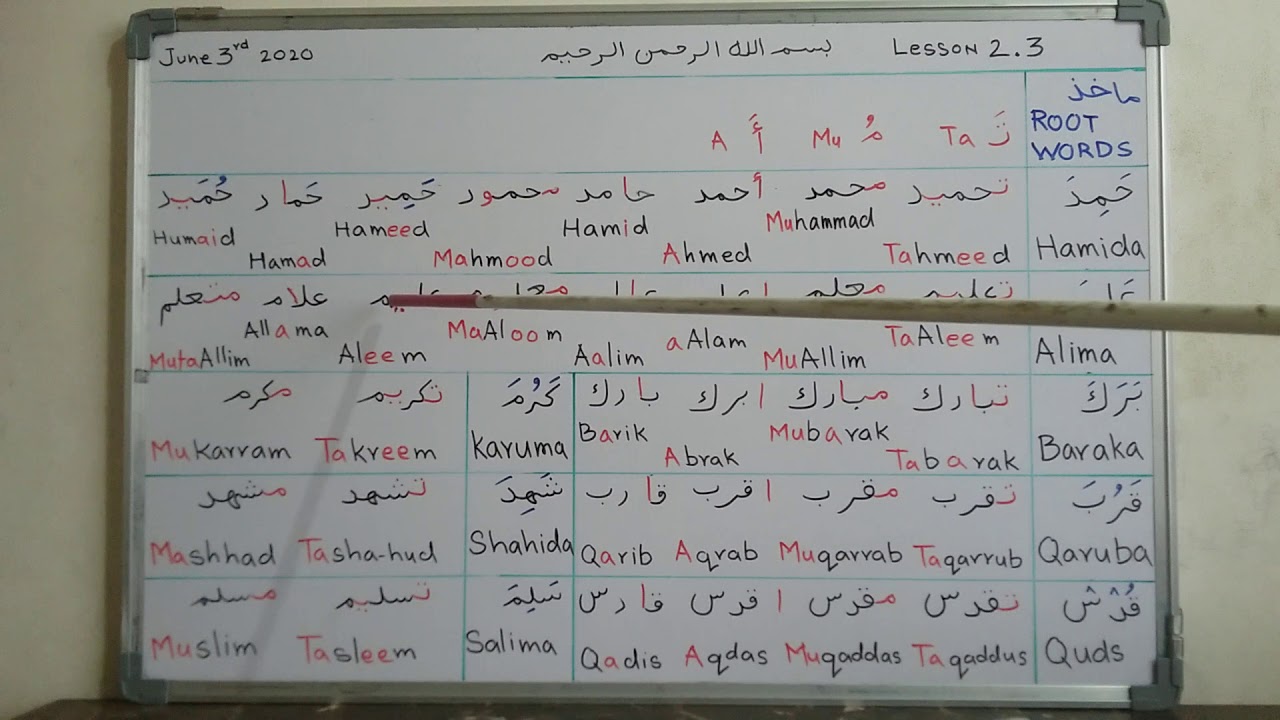 June 3rd 2020 بسم الله الرحمن الرحيم Lesson 2.3
ماخذ
ROOT
WORDS
تَ Ta مُ Mu أَ A
حَمِدَ تحميد محمد أحمد حامد محمود حَمِيد حَماد حُمَيد
Hamida Tahmeed Muhammad Ahmed Hamid Mahmood Hameed Hamad Humaid
علام متعلم
Alima TaAleem MuAllim aAlam Aalim MaAloom Aleem Allama MutaAllim
بَرَكَ تبارك مبارك ابرك بارك
Baraka Tabarak Mubarak Abrak Barik
كَرُمَ تكريم مكرم
Karuma Takreem Mukarram
قَرُبَ تقرب مقرب اقرب قارب
Qaruba Taqarrub Muqarrab Aqrab Qarib
شَهِدَ تشهد مشهد
Shahida Tasha-hud Mashhad
تقدس مقدس اقدس قادس
Quds Taqaddus Muqaddas Aqdas Qadis
سَلِمَ تسليم مسلم
Salima Tasleem Muslim